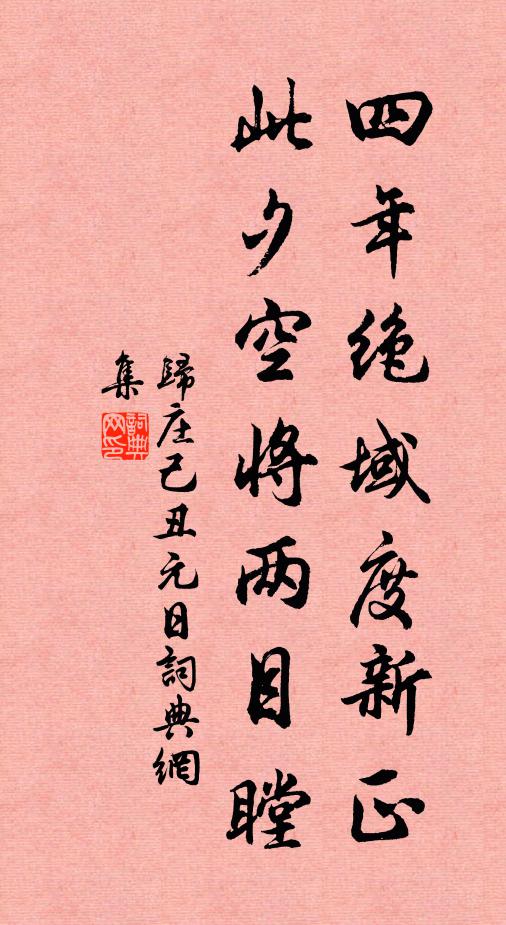 四年绝域度新正
此夕空将两目瞠
歸庄己丑元日詞典網
集
詞典网印